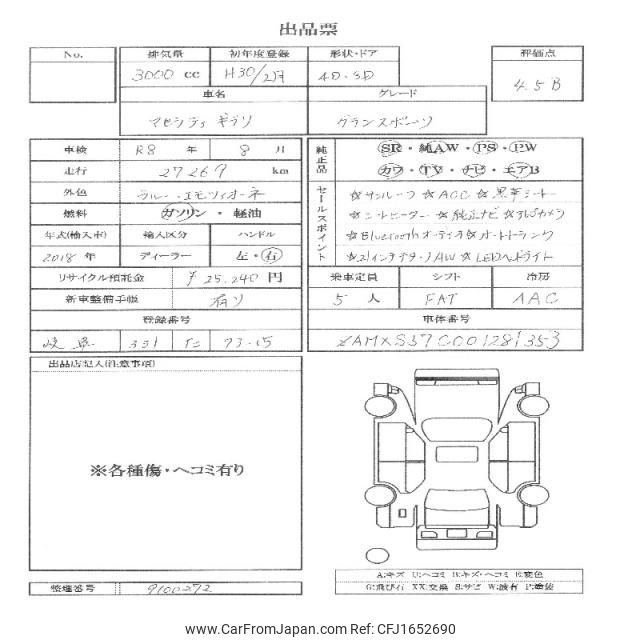 出品票
No. 排気量 初年度登録 形状・ドア 評価点
3000 cc H30/2月 4D・SD 4.5 B
車名 グレード
マセラティ ギブリ グランスポーツ
車検 R8 年 8 月
走行 27269 km
外色 ブルー・エモツィオーネ
燃料 ガソリン・軽油
年式(輸入車) 輸入区分 ハンドル
2018 年 ディーラー 左・右
リサイクル預託金 ¥25,240 円
新車整備手帳 有り
登録番号
岐阜 331 73-15
純正品 SR・純AW・PS・PW
カワ・TV・ナビ・エアB
セールスポイント
☆サンルーフ ☆ACC ☆黒革シート
☆シートヒーター ☆純正ナビ ☆カメラ
☆Bluetoothオーディオ ☆オートトランク
☆21インチAW ☆LEDヘッドライト
乗車定員 シフト 冷房
5 人 FAT AAC
車体番号
ZAMXS57C001281353
出品店記入(注意事項)
※各種傷・ヘコミ有り
整理番号 9100272
A:キズ U:ヘコミ B:キズ・ヘコミ E:変色
G:飛び石 XX:交換 S:サビ W:波有 P:塗装
www.CarFromJapan.com - CFJ1652690